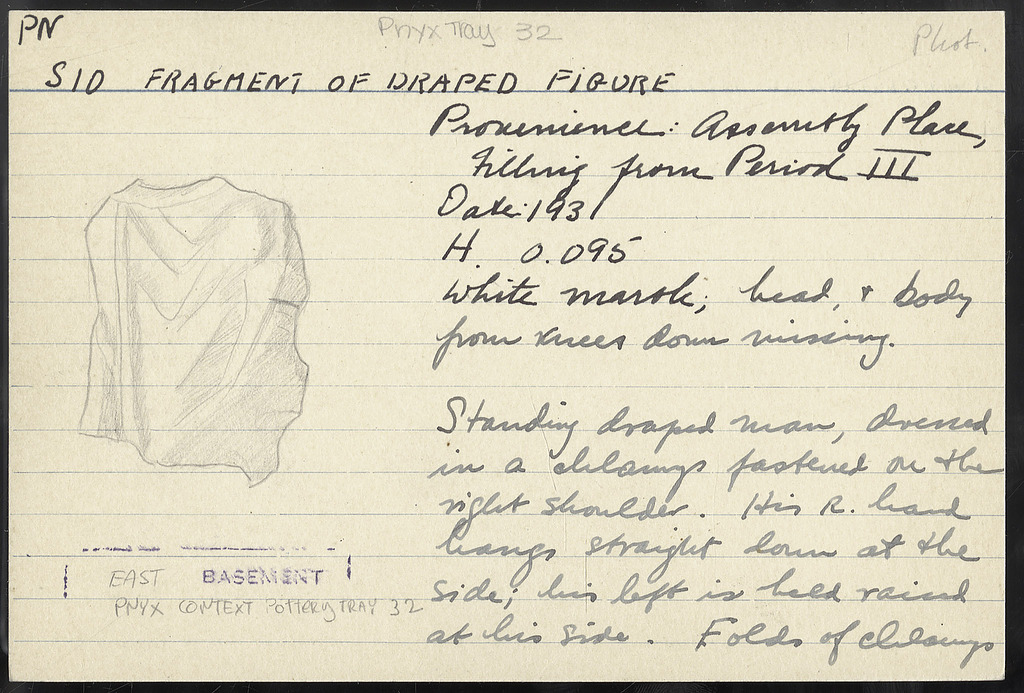 PN
Pnyx Tray 32
Phot.
S10 FRAGMENT OF DRAPED FIGURE
Provenience: Assembly Place,
Filling from Period III
Date: 1931
H. 0.095
White marble; head, & body
from knees down missing.
Standing draped man, dressed
in a chlamys fastened on the
right shoulder. His R. hand
hangs straight down at the
side; his left is held raised
at his side. Folds of chlamys
EAST BASEMENT
PNYX CONTEXT POTTERY TRAY 32